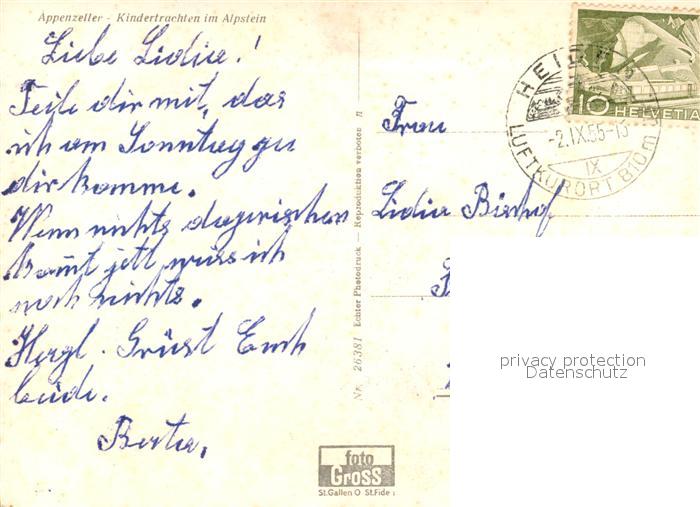 Appenzeller - Kindertrachten im Alpstein
Liebe Lidia!
Teile dir mit, das
ich am Sonntag zu
dir komme.
Wenn nichts dazwischen
kommt jetzt weiss ich
noch nichts.
Herzl. Grüsst Euch
beide.
Berta.
Nr. 26381 Echter Photodruck — Reproduktion verboten
foto
Gross
St.Gallen O St.Fide
HELVETIA
10
HEI
-2.IX.55-15
IX
LUFTKURORT 810m
Frau
Lidia Bischof
privacy protection
Datenschutz